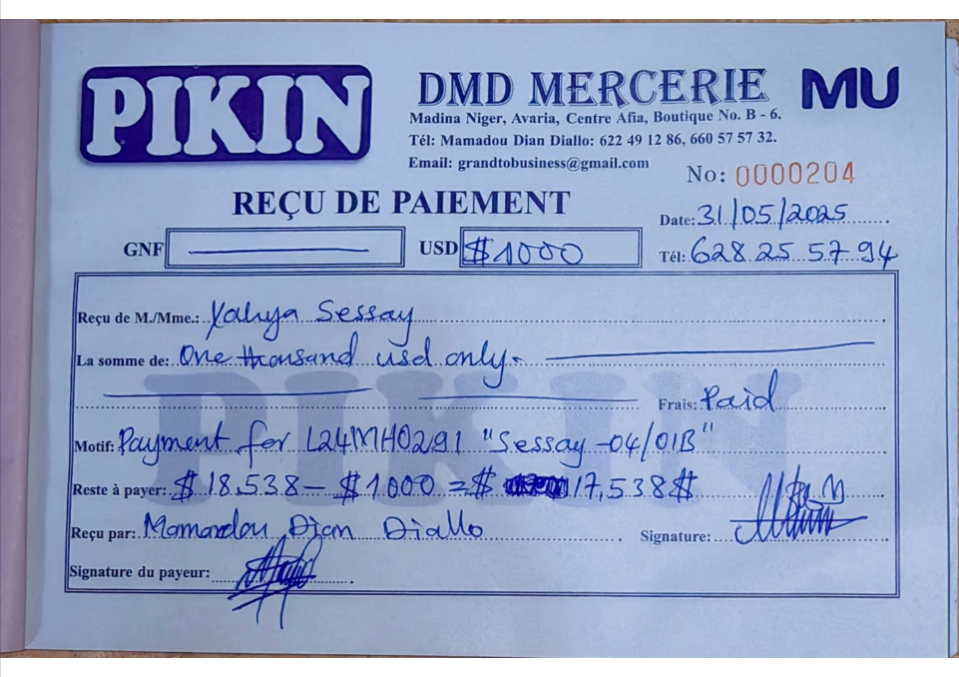 PIKIN
DMD MERCERIE
MU
Madina Niger, Avaria, Centre Afia, Boutique No. B - 6.
Tél: Mamadou Dian Diallo: 622 49 12 86, 660 57 57 32.
Email: grandtobusiness@gmail.com
No: 0000204
REÇU DE PAIEMENT
Date: 31/05/2025
GNF USD $1000
Tél: 628 25 57 94
Reçu de M./Mme.: Yahya Sessay
La somme de: One thousand usd only.
Frais: Paid
Motif: Payment for L24MH0291 "Sessay -04/01B"
Reste à payer: $ 18,538 - $1000 = $ 17,538$
Reçu par: Mamadou Dian Diallo Signature:
Signature du payeur:
PIKIN